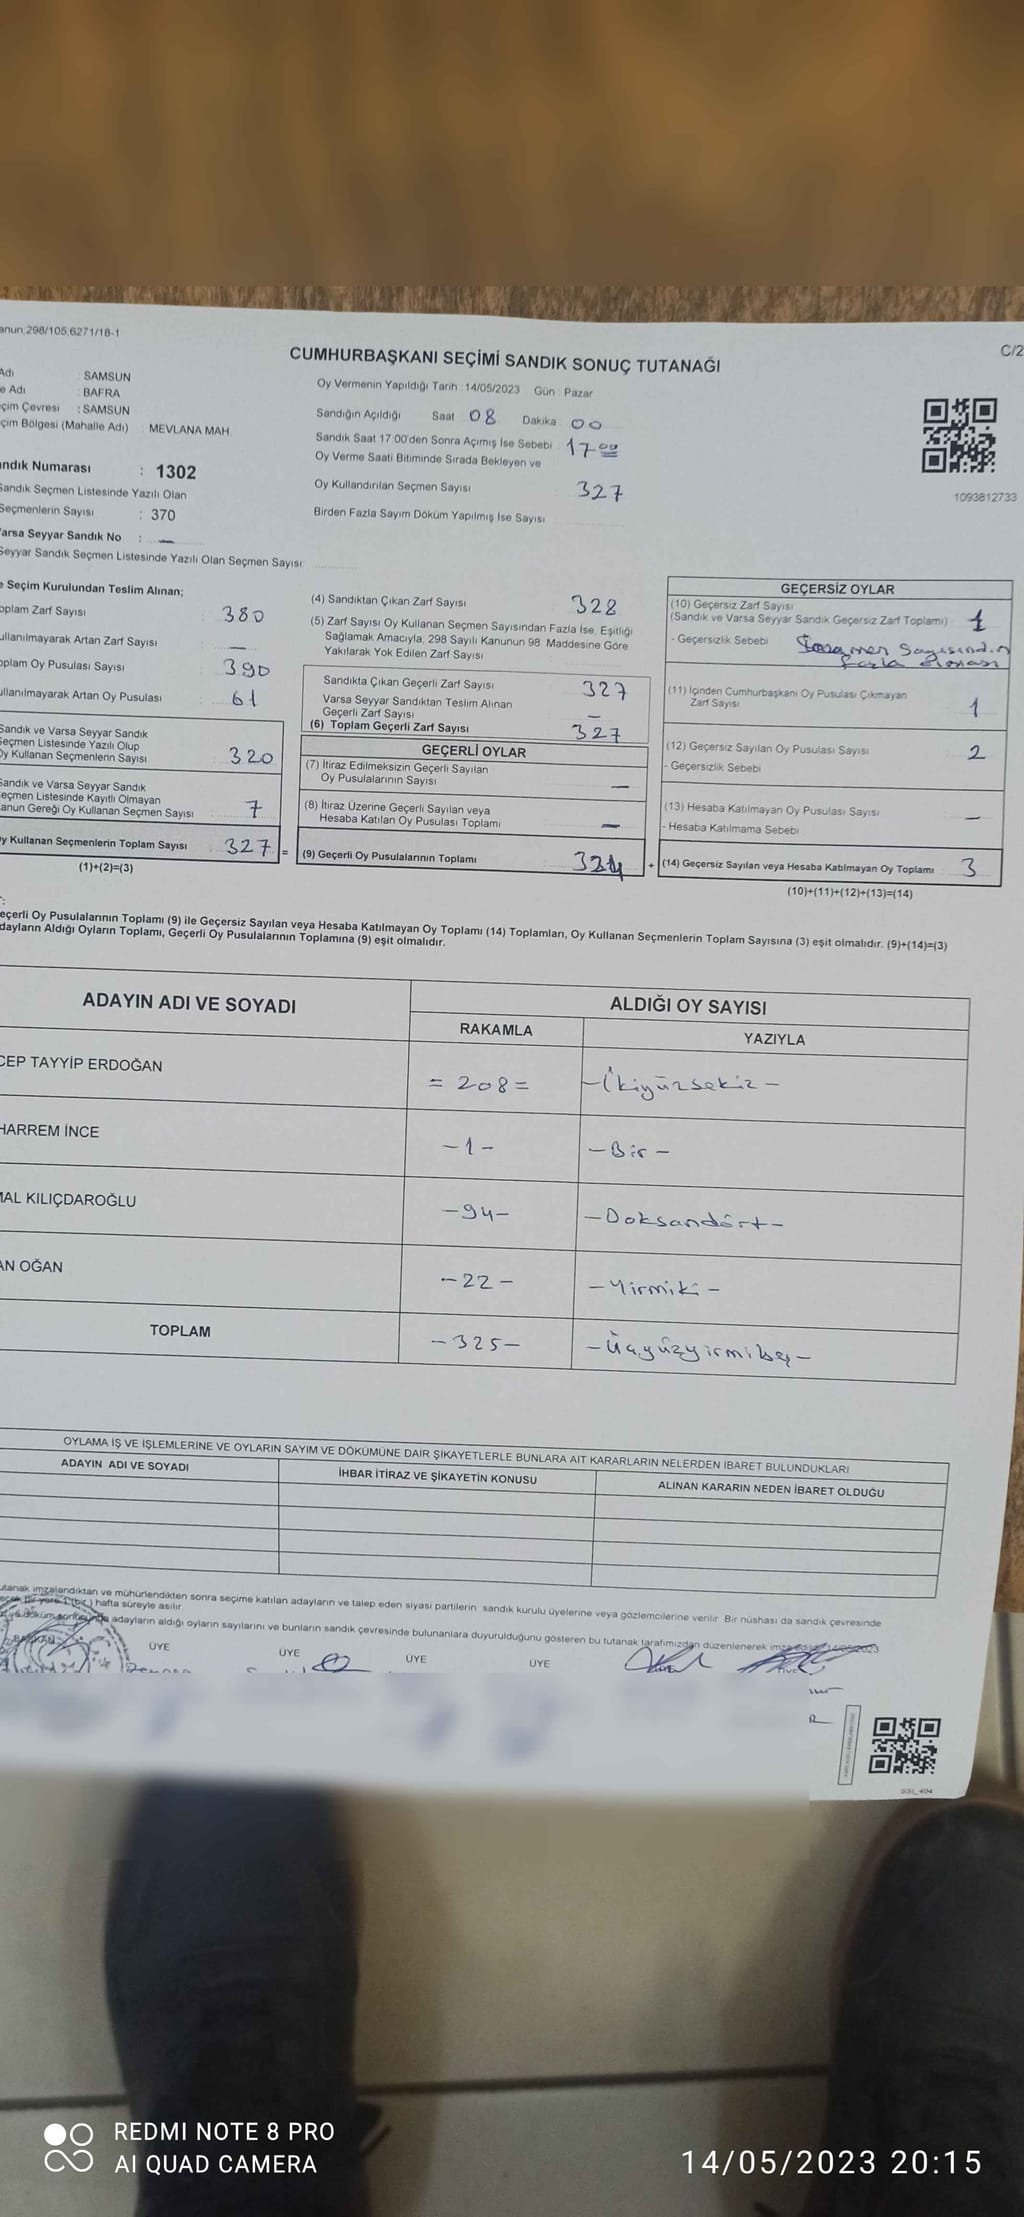 anun:298/105,6271/18-1
C/2
CUMHURBAŞKANI SEÇİMİ SANDIK SONUÇ TUTANAĞI
Adı : SAMSUN
e Adı : BAFRA
çim Çevresi : SAMSUN
çim Bölgesi (Mahalle Adı) : MEVLANA MAH.
ndık Numarası : 1302
Sandık Seçmen Listesinde Yazılı Olan
Seçmenlerin Sayısı : 370
Varsa Seyyar Sandık No : —
Seyyar Sandık Seçmen Listesinde Yazılı Olan Seçmen Sayısı:
Oy Vermenin Yapıldığı Tarih : 14/05/2023 Gün : Pazar
Sandığın Açıldığı Saat 08 Dakika 00
Sandık Saat 17.00'den Sonra Açımış İse Sebebi 17 00
Oy Verme Saati Bitiminde Sırada Bekleyen ve
Oy Kullandırılan Seçmen Sayısı 327
Birden Fazla Sayım Döküm Yapılmış İse Sayısı
1093812733
e Seçim Kurulundan Teslim Alınan;
oplam Zarf Sayısı : 380
ullanılmayarak Artan Zarf Sayısı : —
oplam Oy Pusulası Sayısı : 390
ullanılmayarak Artan Oy Pusulası : 61
Sandık ve Varsa Seyyar Sandık
Seçmen Listesinde Yazılı Olup
Oy Kullanan Seçmenlerin Sayısı : 320
Sandık ve Varsa Seyyar Sandık
eçmen Listesinde Kayıtlı Olmayan
anun Gereği Oy Kullanan Seçmen Sayısı : 7
Oy Kullanan Seçmenlerin Toplam Sayısı 327 =
(1)+(2)=(3)
(4) Sandıktan Çıkan Zarf Sayısı 328
(5) Zarf Sayısı Oy Kullanan Seçmen Sayısından Fazla İse, Eşitliği
Sağlamak Amacıyla, 298 Sayılı Kanunun 98. Maddesine Göre
Yakılarak Yok Edilen Zarf Sayısı
Sandıkta Çıkan Geçerli Zarf Sayısı 327
Varsa Seyyar Sandıktan Teslim Alınan
Geçerli Zarf Sayısı —
(6) Toplam Geçerli Zarf Sayısı 327
GEÇERLİ OYLAR
(7) İtiraz Edilmeksizin Geçerli Sayılan
Oy Pusulalarının Sayısı —
(8) İtiraz Üzerine Geçerli Sayılan veya
Hesaba Katılan Oy Pusulası Toplamı —
(9) Geçerli Oy Pusulalarının Toplamı 324 +
GEÇERSİZ OYLAR
(10) Geçersiz Zarf Sayısı
(Sandık ve Varsa Seyyar Sandık Geçersiz Zarf Toplamı) 1
- Geçersizlik Sebebi Seçmen Sayısından
fazla olması
(11) İçinden Cumhurbaşkanı Oy Pusulası Çıkmayan
Zarf Sayısı 1
(12) Geçersiz Sayılan Oy Pusulası Sayısı 2
- Geçersizlik Sebebi
(13) Hesaba Katılmayan Oy Pusulası Sayısı —
- Hesaba Katılmama Sebebi
(14) Geçersiz Sayılan veya Hesaba Katılmayan Oy Toplamı 3
(10)+(11)+(12)+(13)=(14)
T:
eçerli Oy Pusulalarının Toplamı (9) ile Geçersiz Sayılan veya Hesaba Katılmayan Oy Toplamı (14) Toplamları, Oy Kullanan Seçmenlerin Toplam Sayısına (3) eşit olmalıdır. (9)+(14)=(3)
dayların Aldığı Oyların Toplamı, Geçerli Oy Pusulalarının Toplamına (9) eşit olmalıdır.
ADAYIN ADI VE SOYADI
ALDIĞI OY SAYISI
RAKAMLA YAZIYLA
CEP TAYYİP ERDOĞAN = 208 = – İkiyüzsekiz –
HARREM İNCE – 1 – – Bir –
MAL KILIÇDAROĞLU – 94 – – Doksandört –
AN OĞAN – 22 – – Yirmiki –
TOPLAM – 325 – – Üçyüzyirmibeş –
OYLAMA İŞ VE İŞLEMLERİNE VE OYLARIN SAYIM VE DÖKÜMÜNE DAİR ŞİKAYETLERLE BUNLARA AİT KARARLARIN NELERDEN İBARET BULUNDUKLARI
ADAYIN ADI VE SOYADI İHBAR İTİRAZ VE ŞİKAYETİN KONUSU ALINAN KARARIN NEDEN İBARET OLDUĞU
utanak imzalandıktan ve mühürlendikten sonra seçime katılan adayların ve talep eden siyasi partilerin sandık kurulu üyelerine veya gözlemcilerine verilir. Bir nüshası da sandık çevresinde
bir yere 1 (bir) hafta süreyle asılır.
adayların aldığı oyların sayılarını ve bunların sandık çevresinde bulunanlara duyurulduğunu gösteren bu tutanak tarafımızdan düzenlenerek imza edildi. 14/05/2023
BAŞKAN ÜYE ÜYE ÜYE ÜYE
SSI_404
REDMI NOTE 8 PRO
AI QUAD CAMERA
14/05/2023 20:15